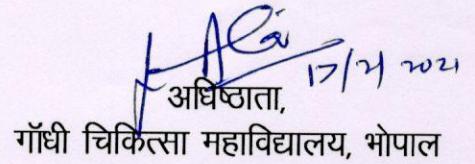 17/2/2021
अधिष्ठाता,
गॉधी चिकित्सा महाविद्यालय, भोपाल